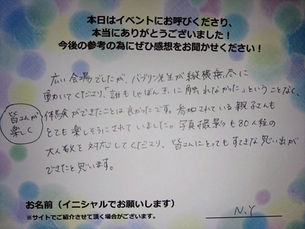 本日はイベントにお呼びくださり、
本当にありがとうございました！
今後の参考の為にぜひ感想をお聞かせください！
広い会場でしたが、バブリン先生が縦横無尽に
動いてくださり「誰もしゃぼん玉に触れなかった」ということなく、
皆さんが
楽しく
体験ができたことは良かったです。参加されている親子さんも
とても楽しそうにされていました。写真撮影も80人程の
大人数を対応してくださり、皆さんにとってもすてきな思い出が
できたと思います。
お名前（イニシャルでお願いします）
※サイトでご紹介させて頂く場合がございます。
N.Y